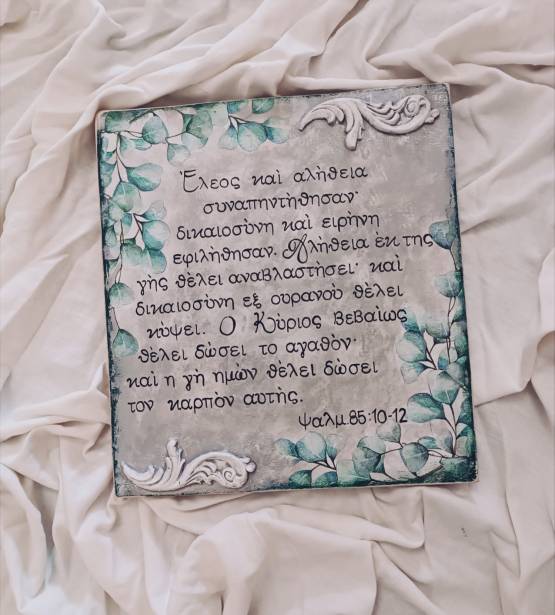 Έλεος και αλήθεια
συναπηντήθησαν·
δικαιοσύνη καὶ ειρήνη
εφιλήθησαν. Αλήθεια εκ της
γής θέλει αναβλαστήσει· καὶ
δικαιοσύνη εξ ουρανού θέλει
κύψει. Ο Κύριος βεβαίως
θέλει δώσει το αγαθόν·
καὶ η γή ημών θέλει δώσει
τον καρπόν αυτής.
ψαλμ.85:10-12